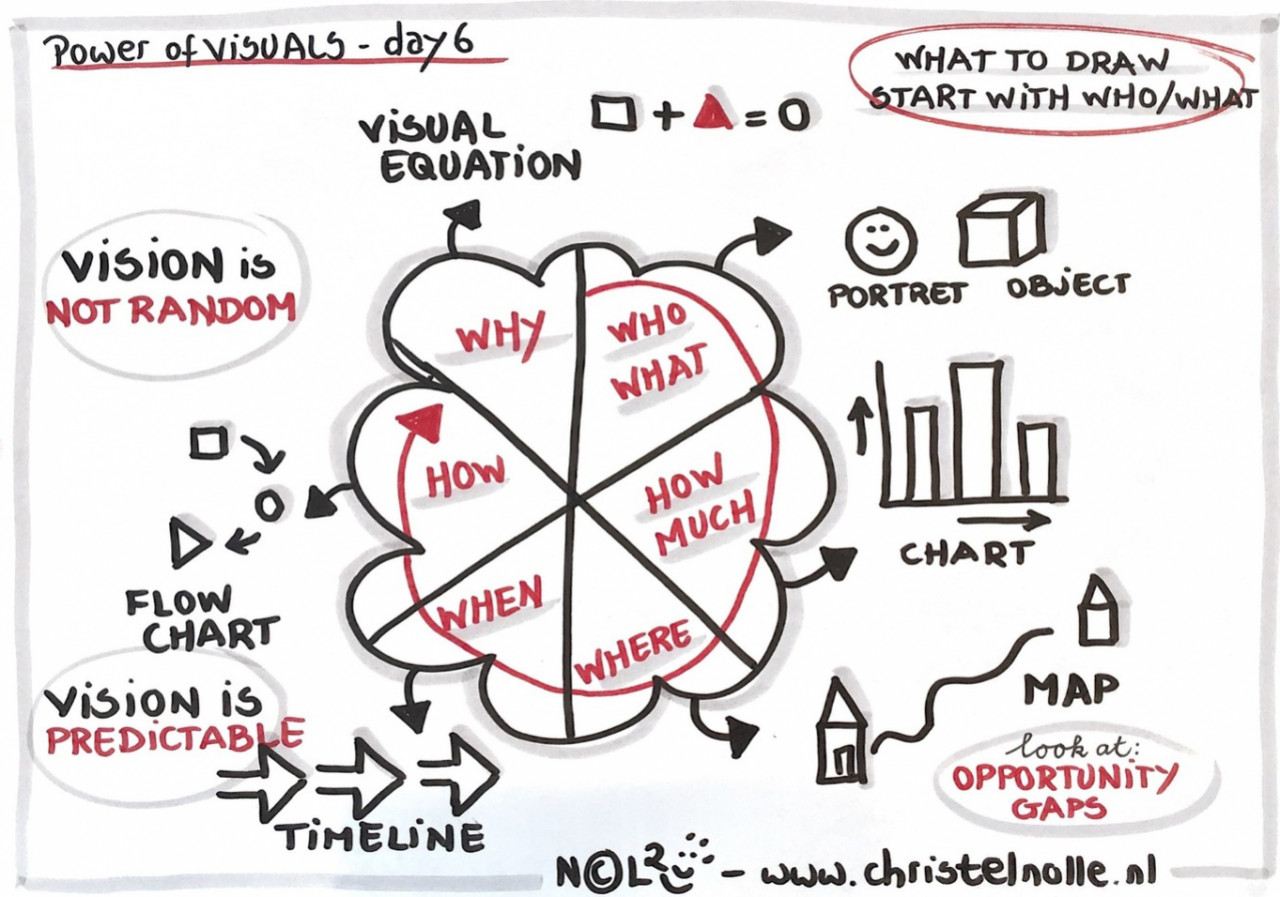 Power of ViSUALS - day 6
WHAT TO DRAW
START WiTH WHO/WHAT
ViSUAL
EQUATiON
□ + ▲ = O
ViSiON iS
NOT RANDOM
PORTRET
OBJECT
WHY
WHO
WHAT
HOW
HOW
MUCH
WHEN
WHERE
CHART
FLOW
CHART
MAP
ViSiON iS
PREDiCTABLE
TiMELiNE
look at:
OPPORTUNiTY
GAPS
N©L2 - www.christelnolle.nl